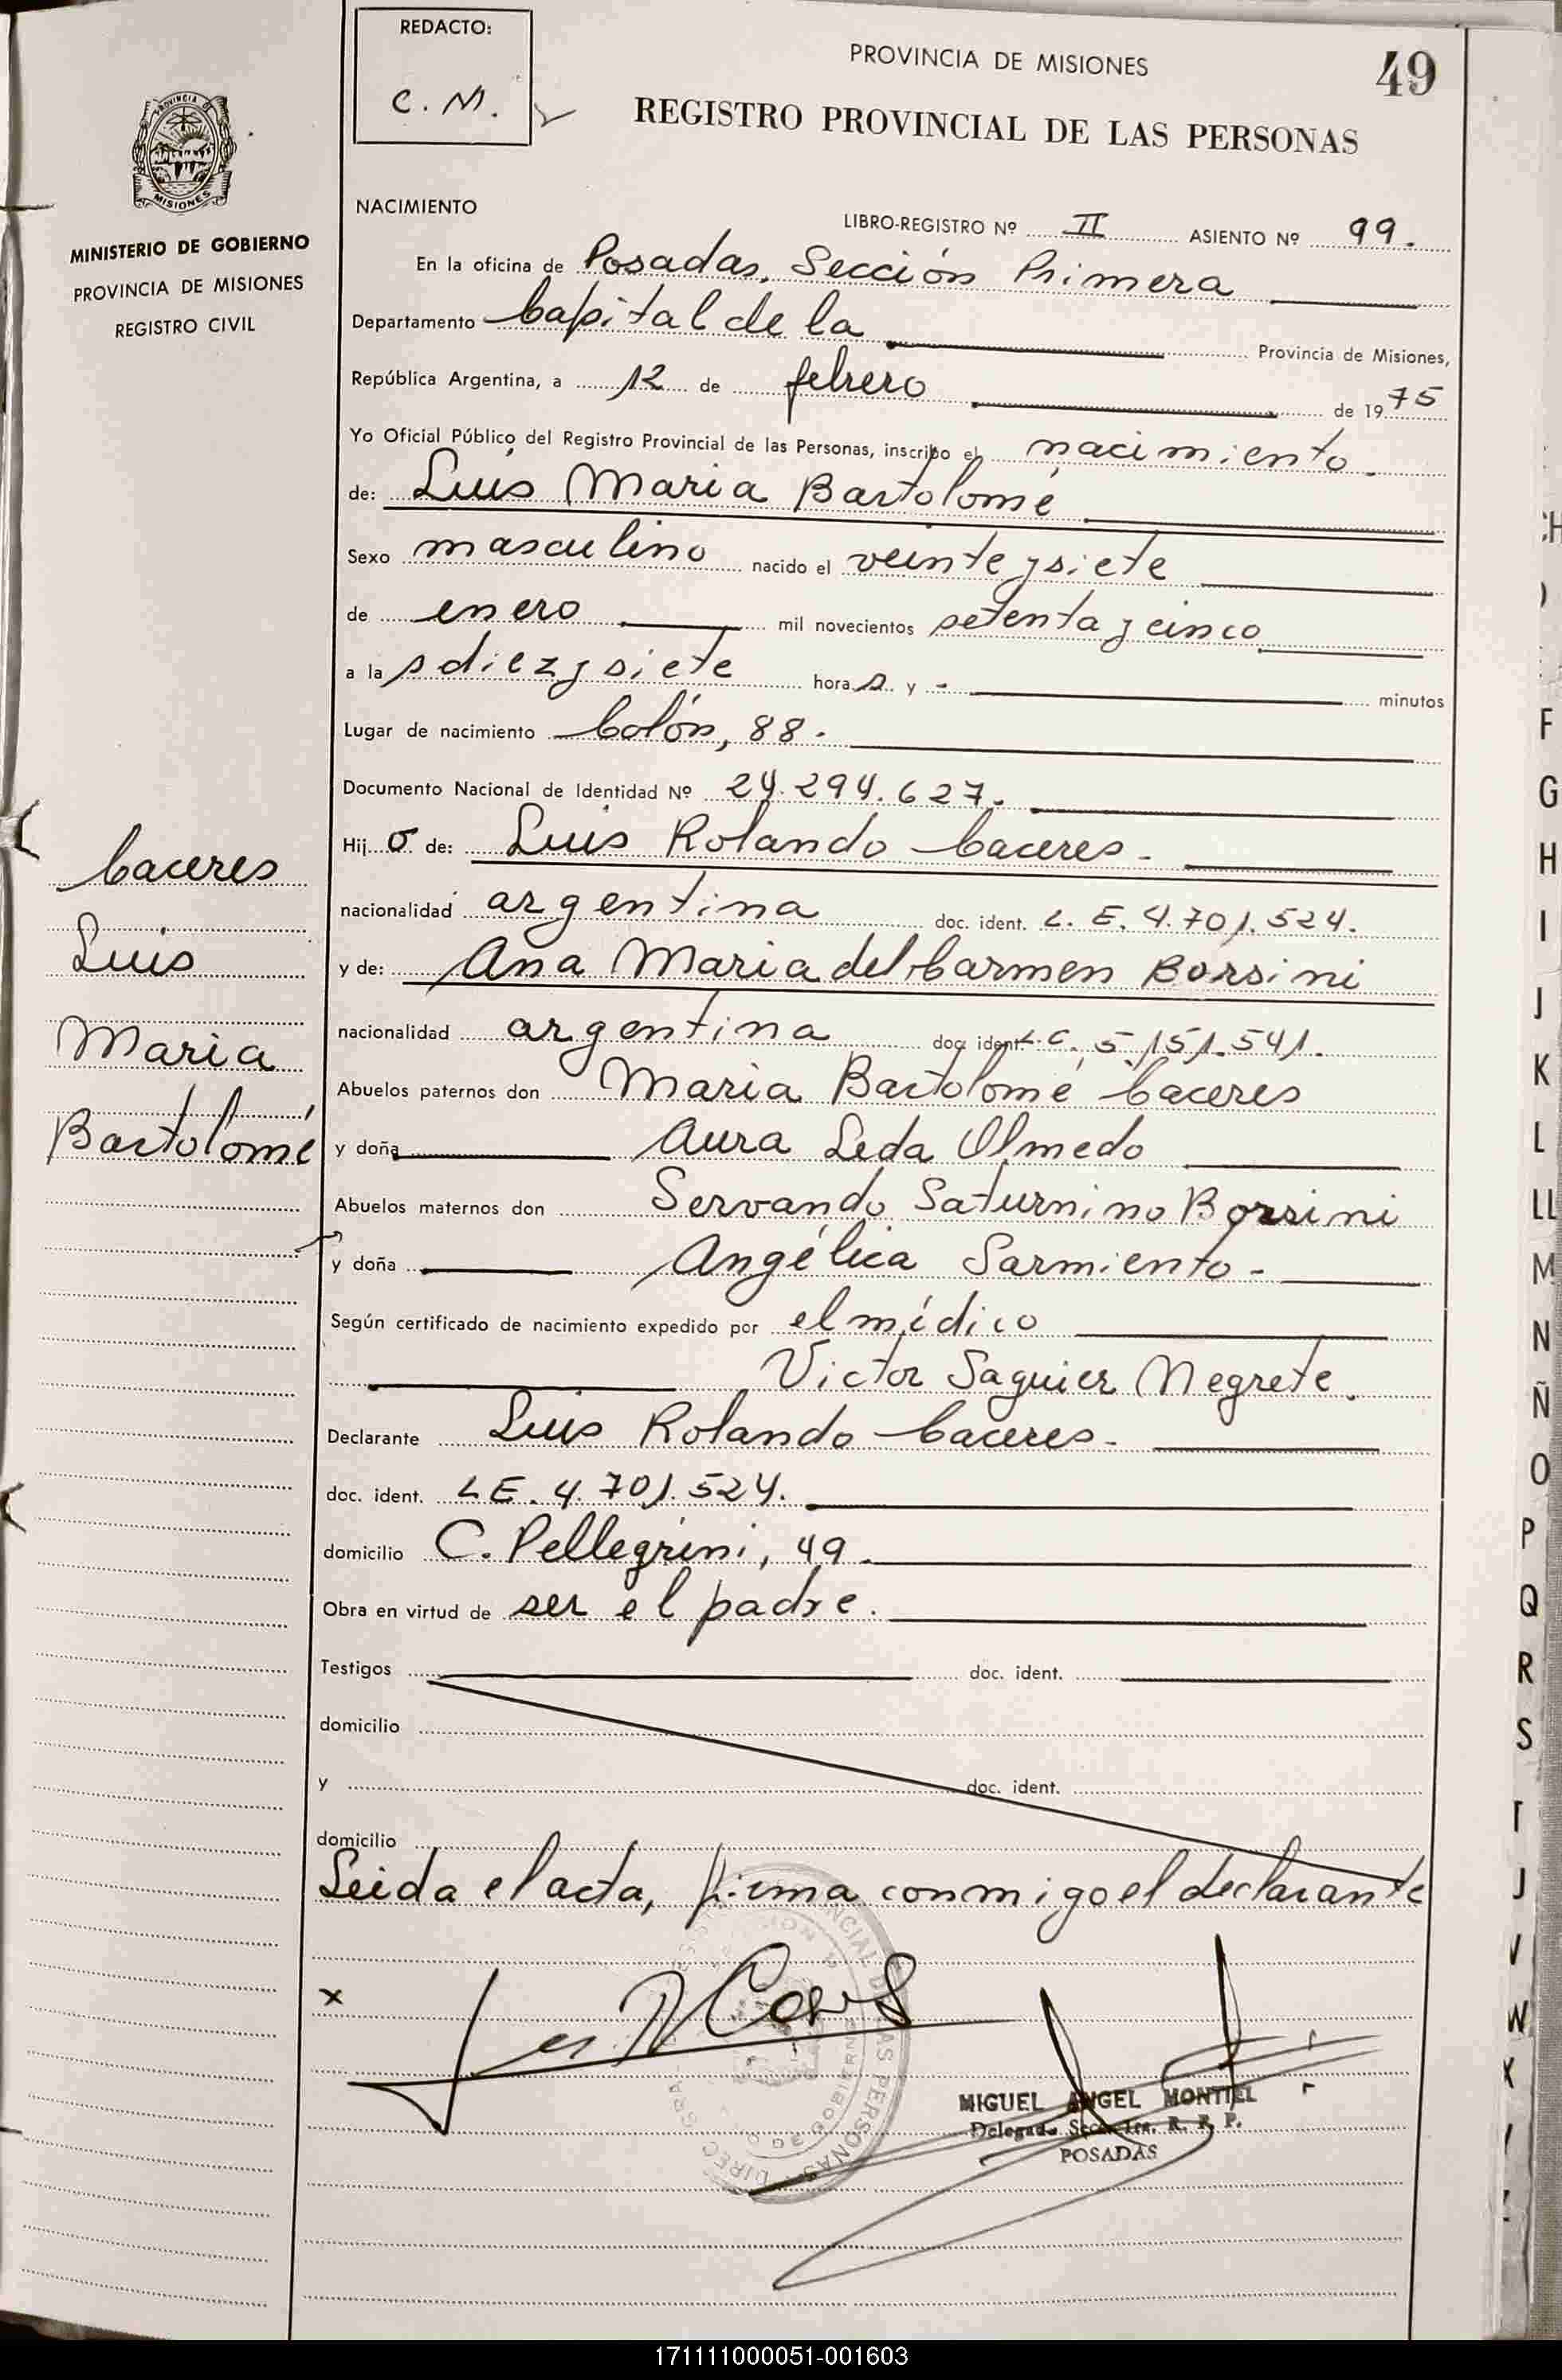 REDACTO:
C. M.
PROVINCIA DE MISIONES
49
REGISTRO PROVINCIAL DE LAS PERSONAS
PROVINCIA DE
MISIONES
MINISTERIO DE GOBIERNO
PROVINCIA DE MISIONES
REGISTRO CIVIL
NACIMIENTO
LIBRO-REGISTRO Nº II ASIENTO Nº 99.
En la oficina de Posadas, Sección Primera
Departamento Capital de la Provincia de Misiones,
República Argentina, a 12 de febrero de 1975
Yo Oficial Público del Registro Provincial de las Personas, inscribo el nacimiento.
de: Luis Maria Bartolomé
Sexo masculino nacido el veinte y siete
de enero mil novecientos setenta y cinco
a la s diez y siete hora s y - minutos
Lugar de nacimiento Colón, 88.
Documento Nacional de Identidad Nº 24.294.627.
Hij o de: Luis Rolando Caceres -
nacionalidad argentina doc. ident. L. E. 4.701.524.
y de: Ana Maria del Carmen Borsini
nacionalidad argentina doc. ident. L.C. 5.151.541.
Abuelos paternos don Maria Bartolomé Caceres
y doña Aura Leda Olmedo
Abuelos maternos don Servando Saturnino Borsini
y doña Angélica Sarmiento -
Según certificado de nacimiento expedido por el médico
Victor Saguier Negrete.
Declarante Luis Rolando Caceres -
doc. ident. L E. 4.701.524.
domicilio C. Pellegrini, 49.
Obra en virtud de ser el padre.
Testigos doc. ident.
domicilio
y doc. ident.
domicilio
Leida el acta, firma conmigo el declarante
Caceres
Luis
Maria
Bartolomé
x
MIGUEL ANGEL MONTIEL
Delegado Secc. 1ra. R. P. P.
POSADAS
F
G
H
I
J
K
L
LL
M
N
Ñ
O
P
Q
R
S
T
171111000051-001603